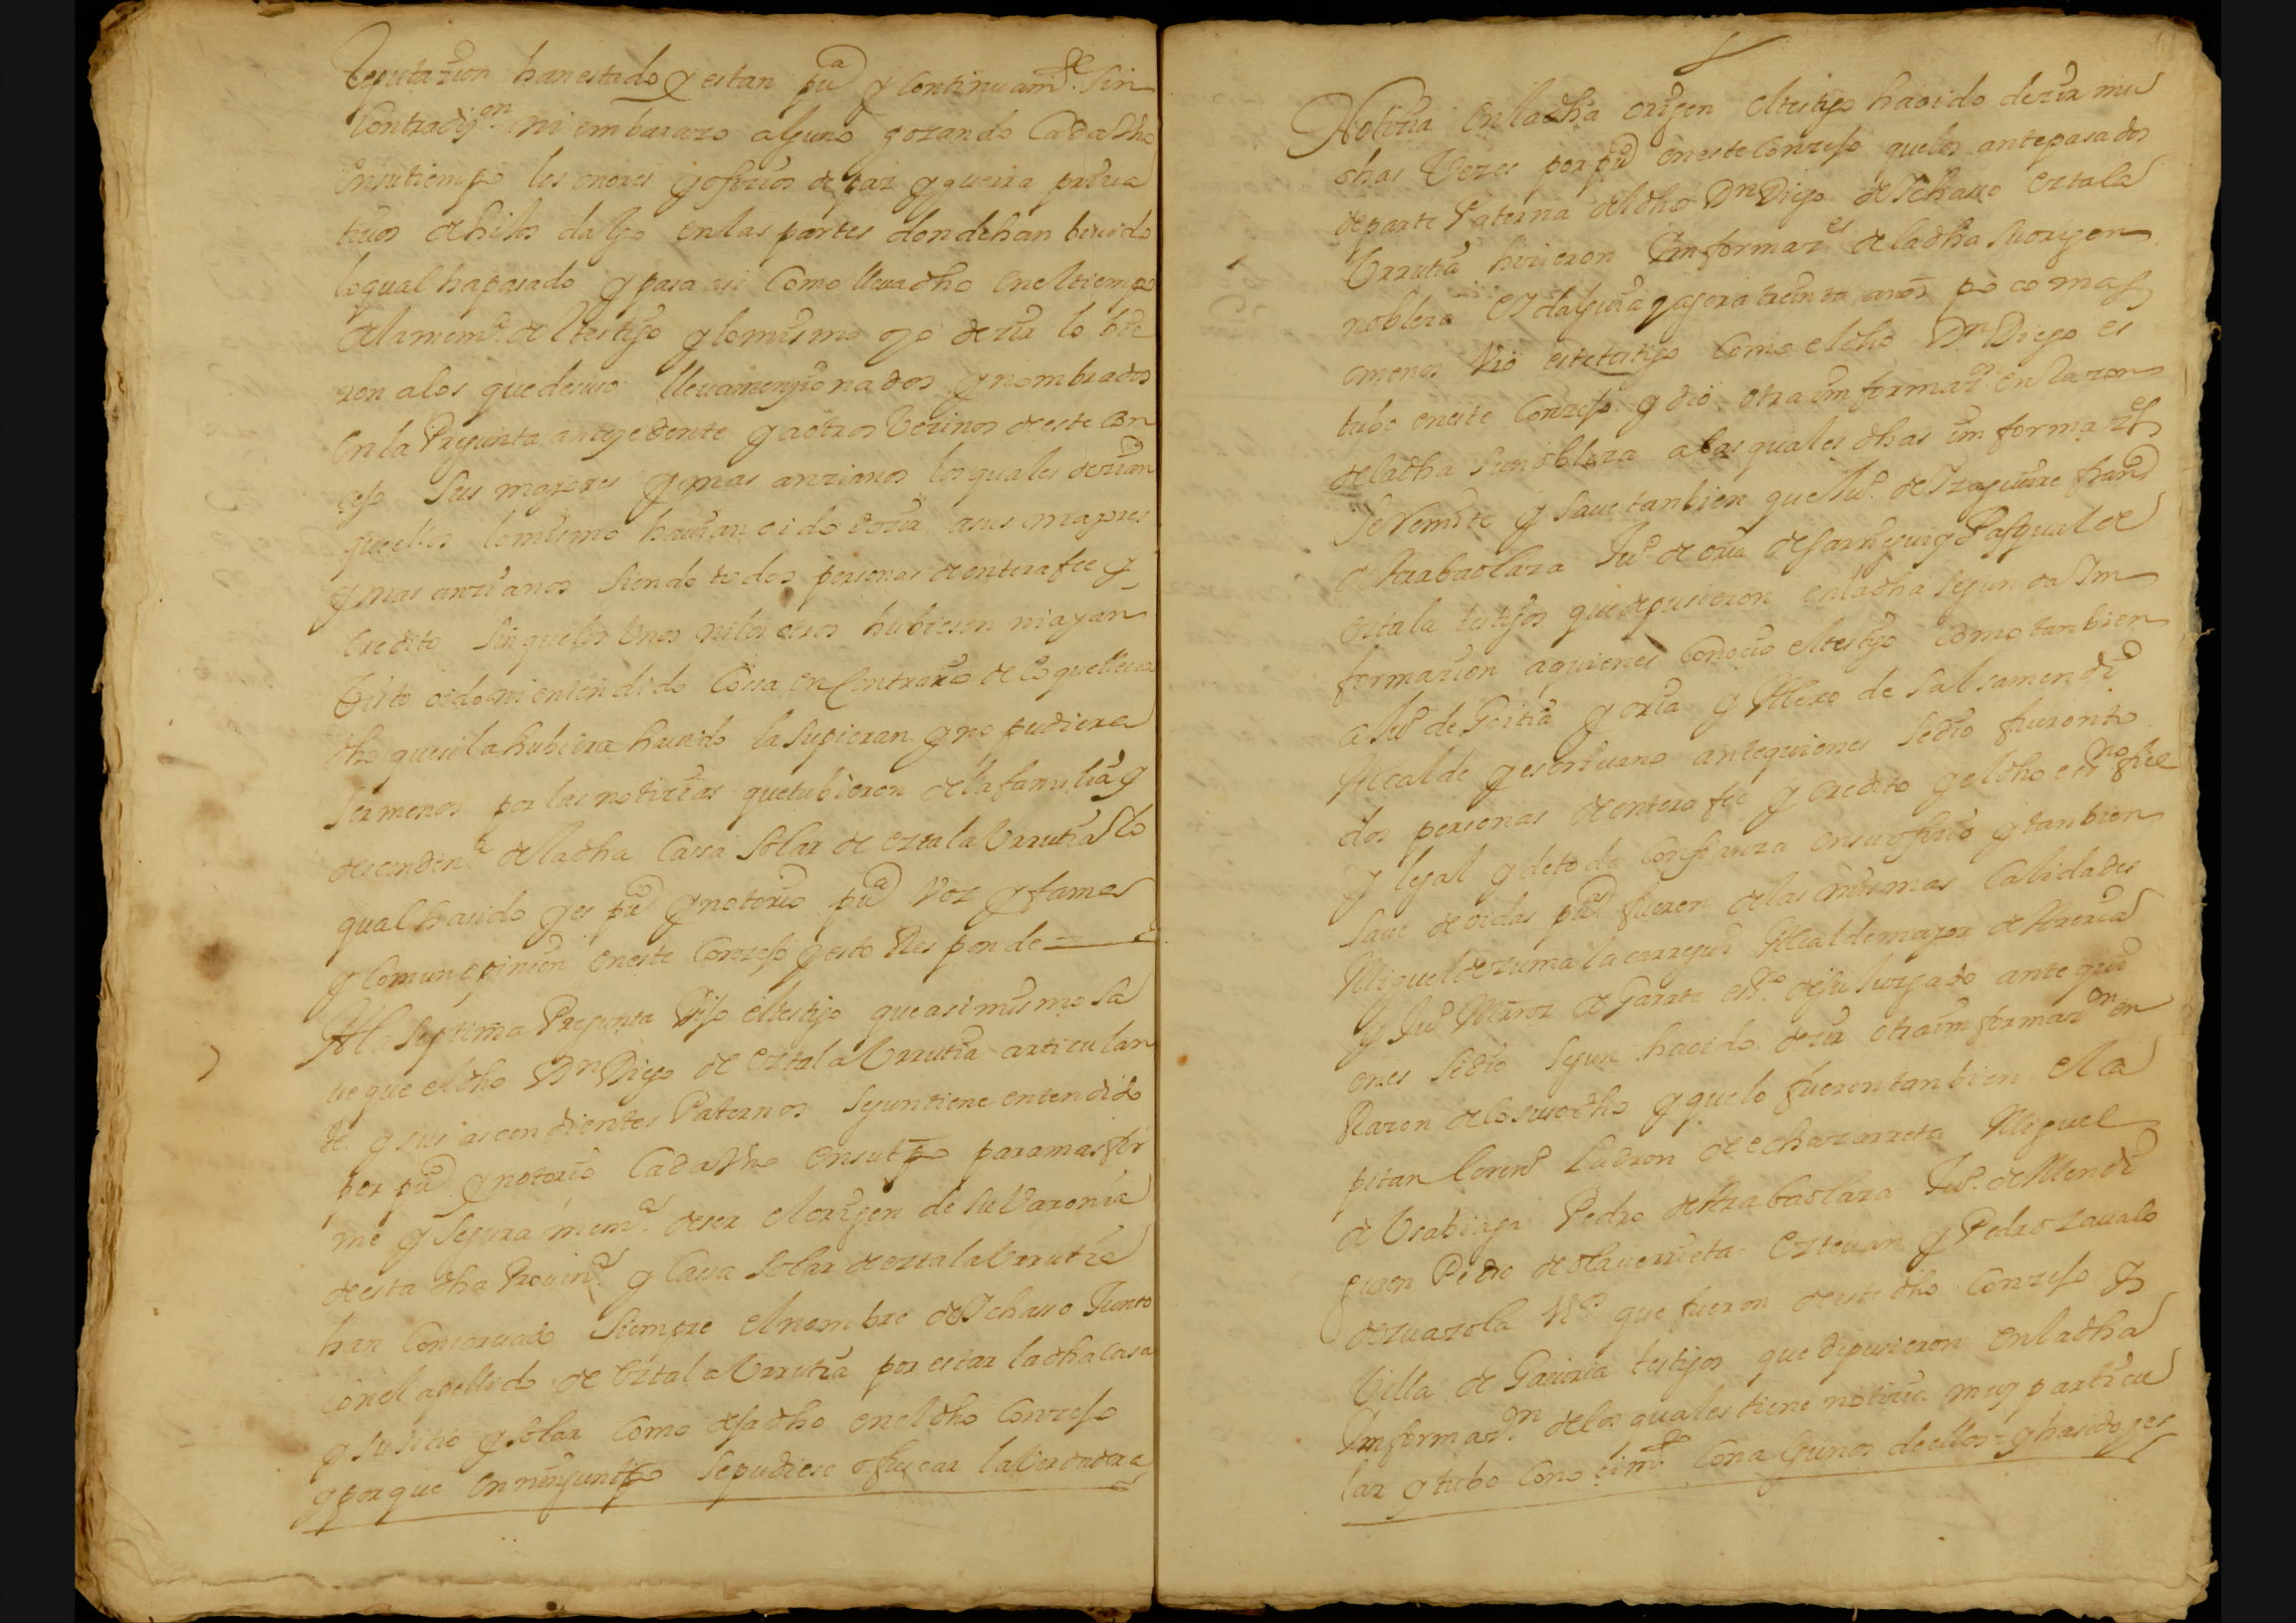 reputazion han estado y estan pu.ca y continuam.te sin
Contradiz.on ni imbarazo alguno gozando Cada Vno
en su tiempo los onores y ofizios de paz y guerra priua
tiuos de hixos dalgo en las partes donde han biuido
lo qual ha pasado y pasa asi Como lleua dho en el tiempo
de la mem.a del testigo y lo mismo oyo dezir lo hizie
ron a los que de suso lleua menzionados y nombrados
en la Pregunta antezedente y a otros Vezinos de este Con
cejo Sus mayores y mas anzianos los quales dezian
que ellos lo mismo hauian oido dezir a sus mayores
y mas anzianos siendo todos personas de entera fee y
Credito sin que los Vnos ni los otros hubiesen ni ayan
Visto oido ni entendido Cossa en Contrario de lo que lleua
dho que si la hubiera hauido la supieran y no pudiera
ser menos por las notizias que tubieron de la familia y
descenden.a de la dha Cassa Solar de eztala Vrrutia lo
qual ha sido y es pu.co y notorio pu.ca Voz y fama
y Comun opinion en este Conzejo y esto Responde
A la Septima Pregunta Dijo el testigo que asimismo sa
ue que el dho Dn Diego de eztala Vrrutia articulan
te y sus ascendientes Paternos segun tiene entendido
por pu.co y notorio Cada Vno en su tpo para mas fir
me y segura mem.a de ser el origen de su Varonia
de esta dha Prouin.a y Cassa Solar de eztala Vrrutia
han Conseruado siempre el nombre de Ichaso Junto
con el apellido de Eztala Vrrutia por estar la dha Casa
y su sitio y solar Como deja dho en el dho Conzejo
y porque en ningun tpo se pudiese ofuscar la Verdadera
Notizia en la dha origen el testigo ha oido dezir mu
chas Vezes por pu.co en este Conzejo que los antepasados
de parte Paterna del dho Dn Diego de Ichaso eztala
Vrrutia hizieron Informaz.es de la dha su origen
nobleza Ydalguia y agora treinta años poco mas
o menos Vio este testigo Como el dho Dn Diego es
tubo en este Conzejo y dio otra informaz.on en razon
de la dha su nobleza a las quales dhas informaz.es
se remite y saue tanbien que Ju.o de Yzaguirre fran.co
de Arabaolaza Ju.o de oria de Garinsyui y Pasqual de
eztala testigos que depusieron en la dha segunda In
formazion a quienes Conocio el testigo Como tanbien
a Ju.o de Goitia y oria y Alexo de Salsamendi
Alcalde y escriuano ante quienes se dio fueron to
dos personas de entera fee y Credito y el dho ess.no fiel
y legal y de toda Confianza en su ofizio y tanbien
saue de oidas pu.cas fueron de las mismas Calidades
Miguel de zumalacarregui Alcalde mayor de Areria
y Ju.o Mrnz de Garate ess.no de su Juzgado ante qui
enes se dio segun ha oido dezir otra informaz.on en
Razon de lo suso dho y que lo fueron tanbien el Ca
pitan Loren.o Ladron de echazarreta Miguel
de Vsabiaga Pedro de Arabaolaza Ju.o de Mendi
guren Pedro de olauerrieta Esteuan y Pedro zauala
de zuazola V.os que fueron de este dho Conzejo y
Villa de Gauiria testigos que depusieron en la dha
Informaz.on de los quales tiene notizia muy particu
lar y tubo Conocim.to Con algunos de ellos y ha sido y es